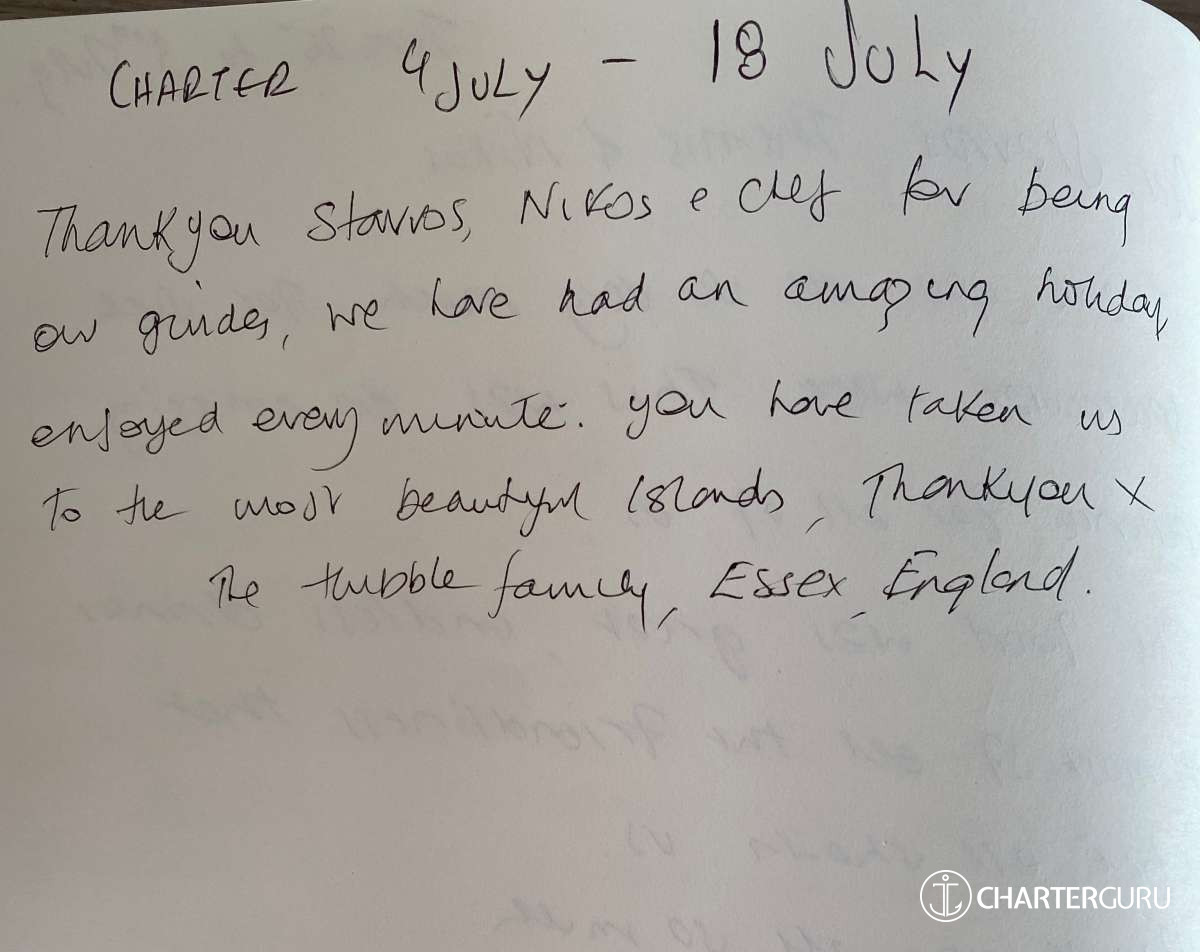 CHARTER 4 JULY - 18 JULY
Thankyou Stavros, NIKOS e Chef for being
our guides, we have had an amazing holiday
enjoyed every minute. you have taken us
To the most beautiful Islands, Thankyou X
The Hubble family, Essex, England.
CHARTERGURU